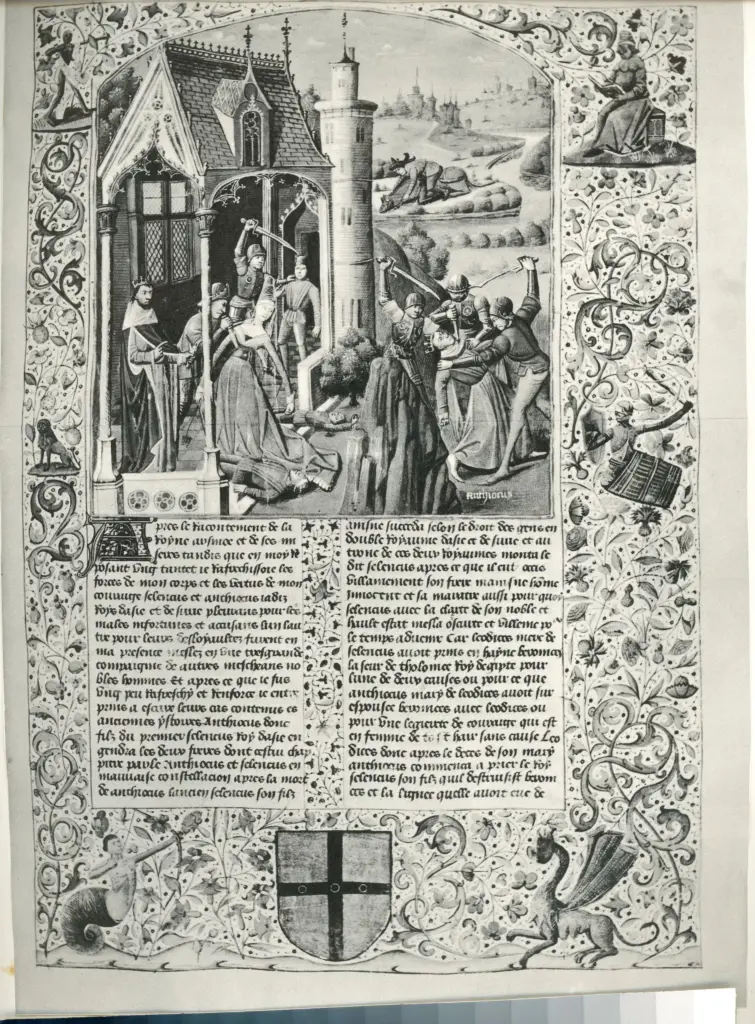 Anthiocus
Apres le racontement de la
royne arsinoe et de ses en
fevrs tandis que en moy re
posant ung tantet ie rafreschissoie les
forces de mon corps et les vertus de mon
couraige seleucus et anthiocus iadis
roys dasie et de sirie plourans pour les
males infortunes et acusans lun lau
tre pour leurs desloyaultes furent en
ma presence meslez en une tresgrande
compaignie de autres mescheans no
bles hommes Et apres ce que ie fus
ung peu rafreschy et renforce ie entre
prins a escrire leurs cas contenus es
anciennes ystoires Anthiocus donc
filz du premier seleucus roy dasie en
gendra les deux freres dont cestui chap
pitre parle Anthiocus et seleucus en
mauvaise constellacion apres la mort
de anthiocus lancien seleucus son filz
ainsne succeda selon le droit des gens en
double royaume dasie et de surie et au
trone de ces deux royaumes monta le
dit seleucus apres ce que il eut occis
villainement son frere mainsne home
innocent et sa maratre aussi pour quoy
seleucus avec la clarte de son noble et
hault estat mesla oscurte et villenie pour
le temps advenir Car leodices mere de
seleucus avoit prins en hayne beronices
la seur de tholomee roy degipte pour
lune de deux causes ou pour ce que
anthiocus mary de leodices avoit sur
espousee beronices avec leodices ou
pour une legierete de couraige qui est
en femme de tost hair sans cause Leo
dices donc apres le deces de son mary
anthiocus commenca a prier le roy
seleucus son filz quil destruisist beroni
ces et la lignee quelle avoit eue de